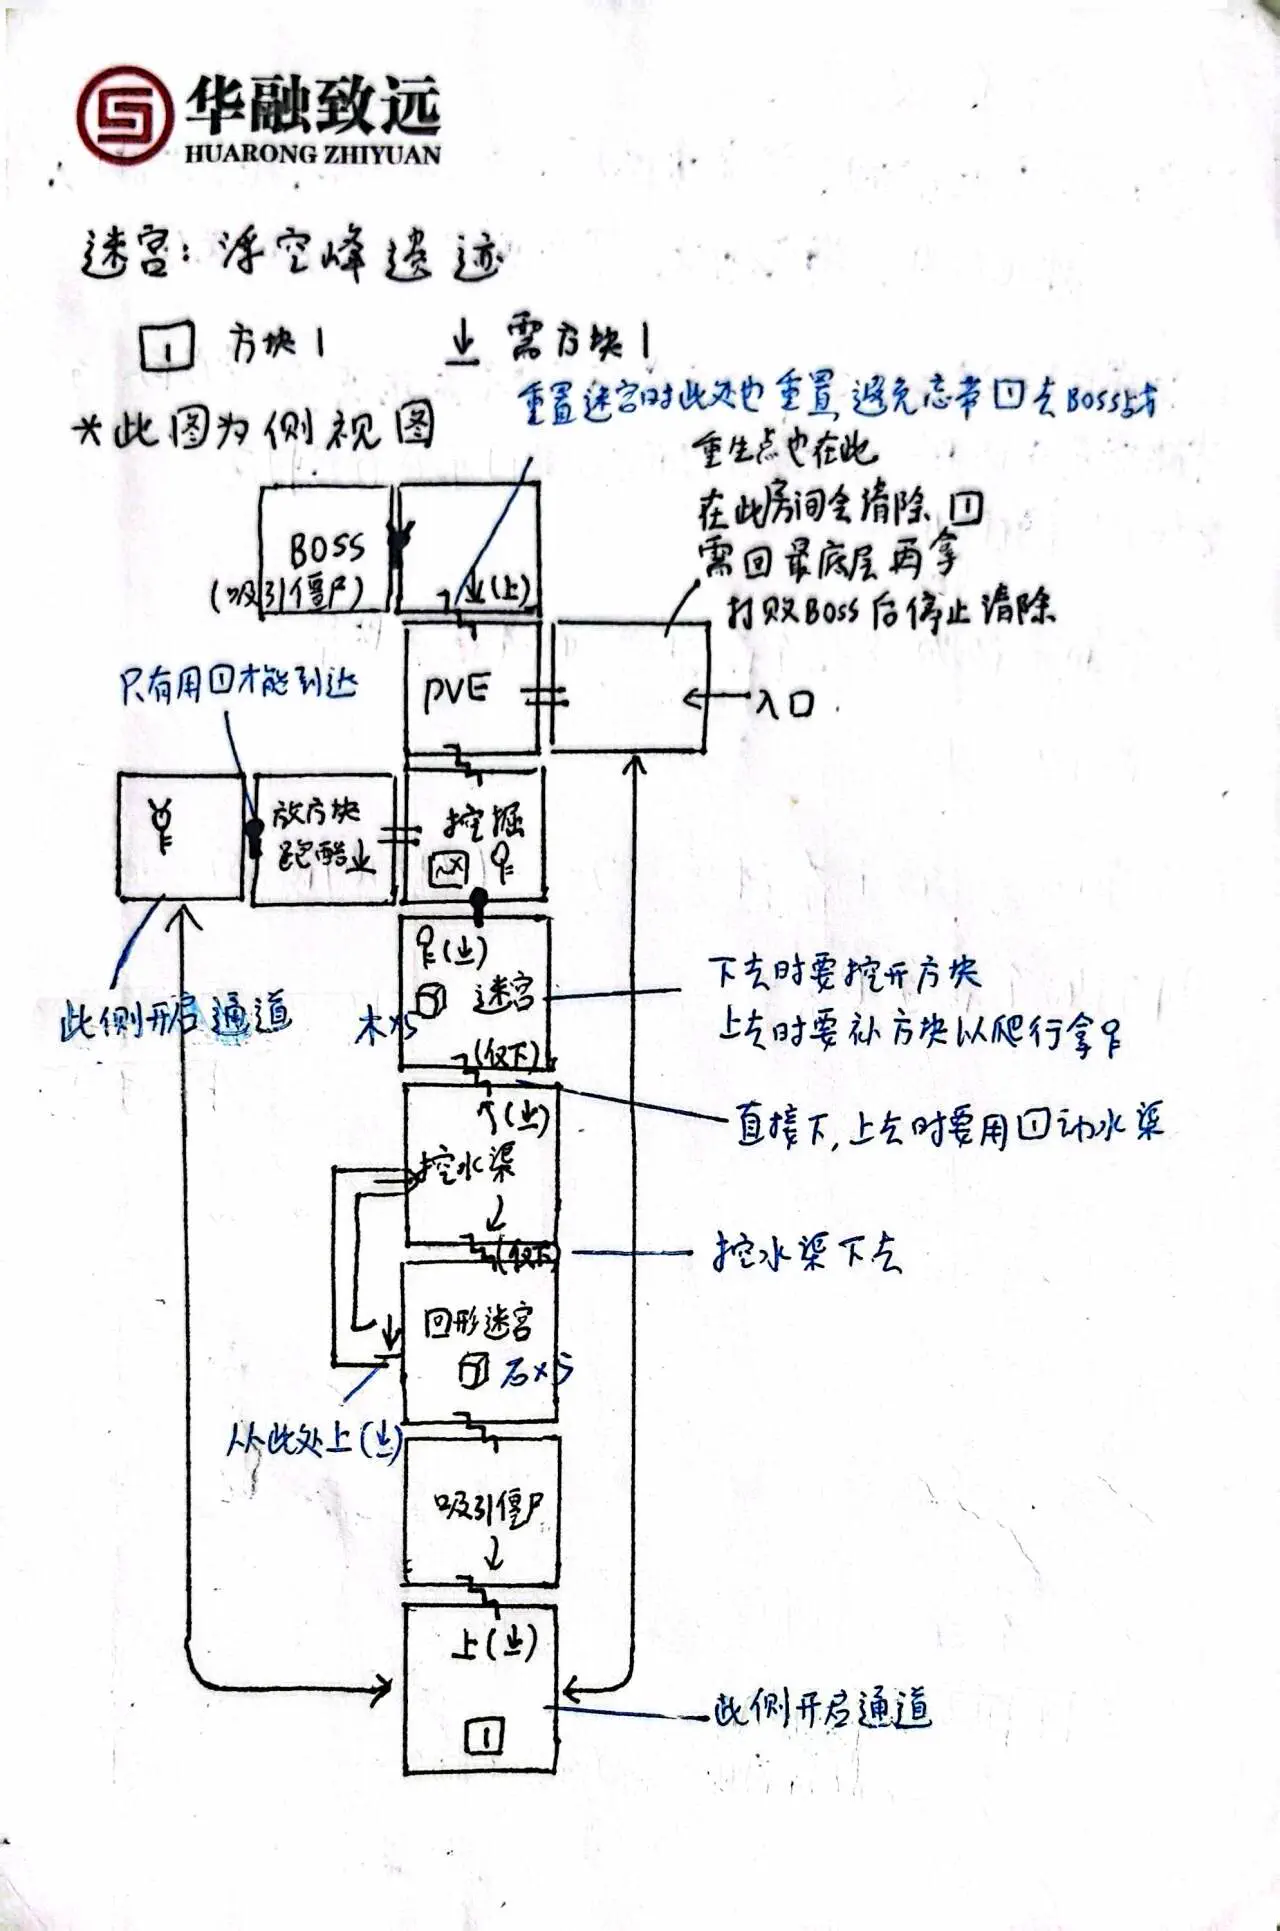 华融致远
HUARONG ZHIYUAN
迷宫：浮空峰遗迹
1 方块1
需方块1
重置迷宫时此处也重置，避免忘带1去BOSS战
*此图为侧视图
重生点也在此
在此房间会清除1
需回最底层再拿
打败BOSS后停止清除
BOSS
(吸引僵尸)
(上)
只有用1才能到达
PVE
入口
放方块
跑酷业
挖掘
此侧开启通道
迷宫
木×5
(仅下)
下去时要挖开方块
上去时要补方块以爬行拿
直接下，上去时要用1动水渠
挖水渠
(仅下)
挖水渠下去
回形迷宫
石×5
从此处上
吸引僵尸
上
1
此侧开启通道